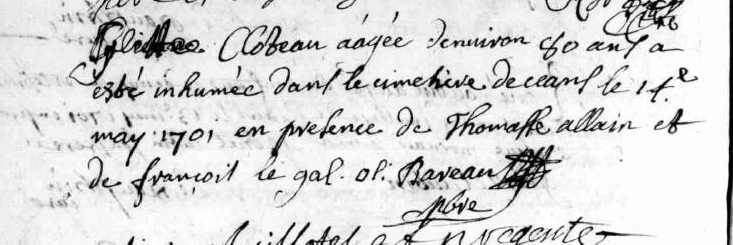 Clobeau aagée denuiron 80 ans a
esté inhumée dans le cimetiere de ceans le 14.e
may 1701 en presence de Thomasse allain et
de françois le gal. ol. Raveau
pbre